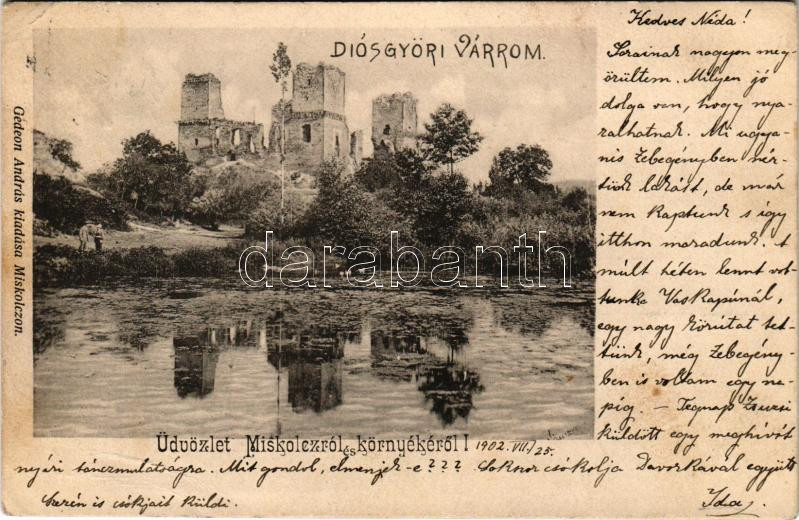 DIÓSGYÖRI VÁRROM.
Gedeon András kiadása Miskolczon.
darabanth.com
Üdvözlet Miskolczról és környékéről! 1902. VII./25.
Kedves Néda!
Sorainak nagyon meg-
örültem. Milyen jó
dolga van, hogy nya-
ralhatnak. Mi ugya-
nis Zebegényben bér-
tünk lakást, de már
nem kaptunk s így
itthon maradunk. A
múlt héten lennt vol-
tunk a Vaskapúnál,
egy nagy körútat tet-
tünk, még Zebegény-
ben is voltam egy na-
pig. — Tegnap Zsuzsi
küldött egy meghívót
nyári tánczmulatságra. Mit gondol, elmenjek-e??? Sokszor csókolja Davorkával együtt
Ida
Terén is csókjait küldi.